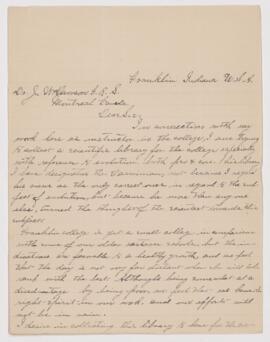 Franklin Indiana U.S.A.
Dr. J. W. Dawson F.R.S.
Montreal Canada
Dear Sir;
In connection with my
work here as instructor in the college, I am trying
to collect a scientific library for the college especially
with reference to evolution both pro & con. This library
I have designated the Darwinian, not because I regard
his name as the only correct one in regard to the sub
ject of evolution, but because he more than any one
else, turned the thought of the scientist towards this
subject.
Franklin college is yet a small college in comparison
with some of our older eastern schools, but the in
dications are favorable to a healthy growth, and we feel
that the day is not very far distant when she will be
rank with the best. Although being somewhat at a
disadvantage by being poor, we feel that we have the
right spirit in our work, and our efforts will
not be in vain.
I desire in collecting this library to have for the